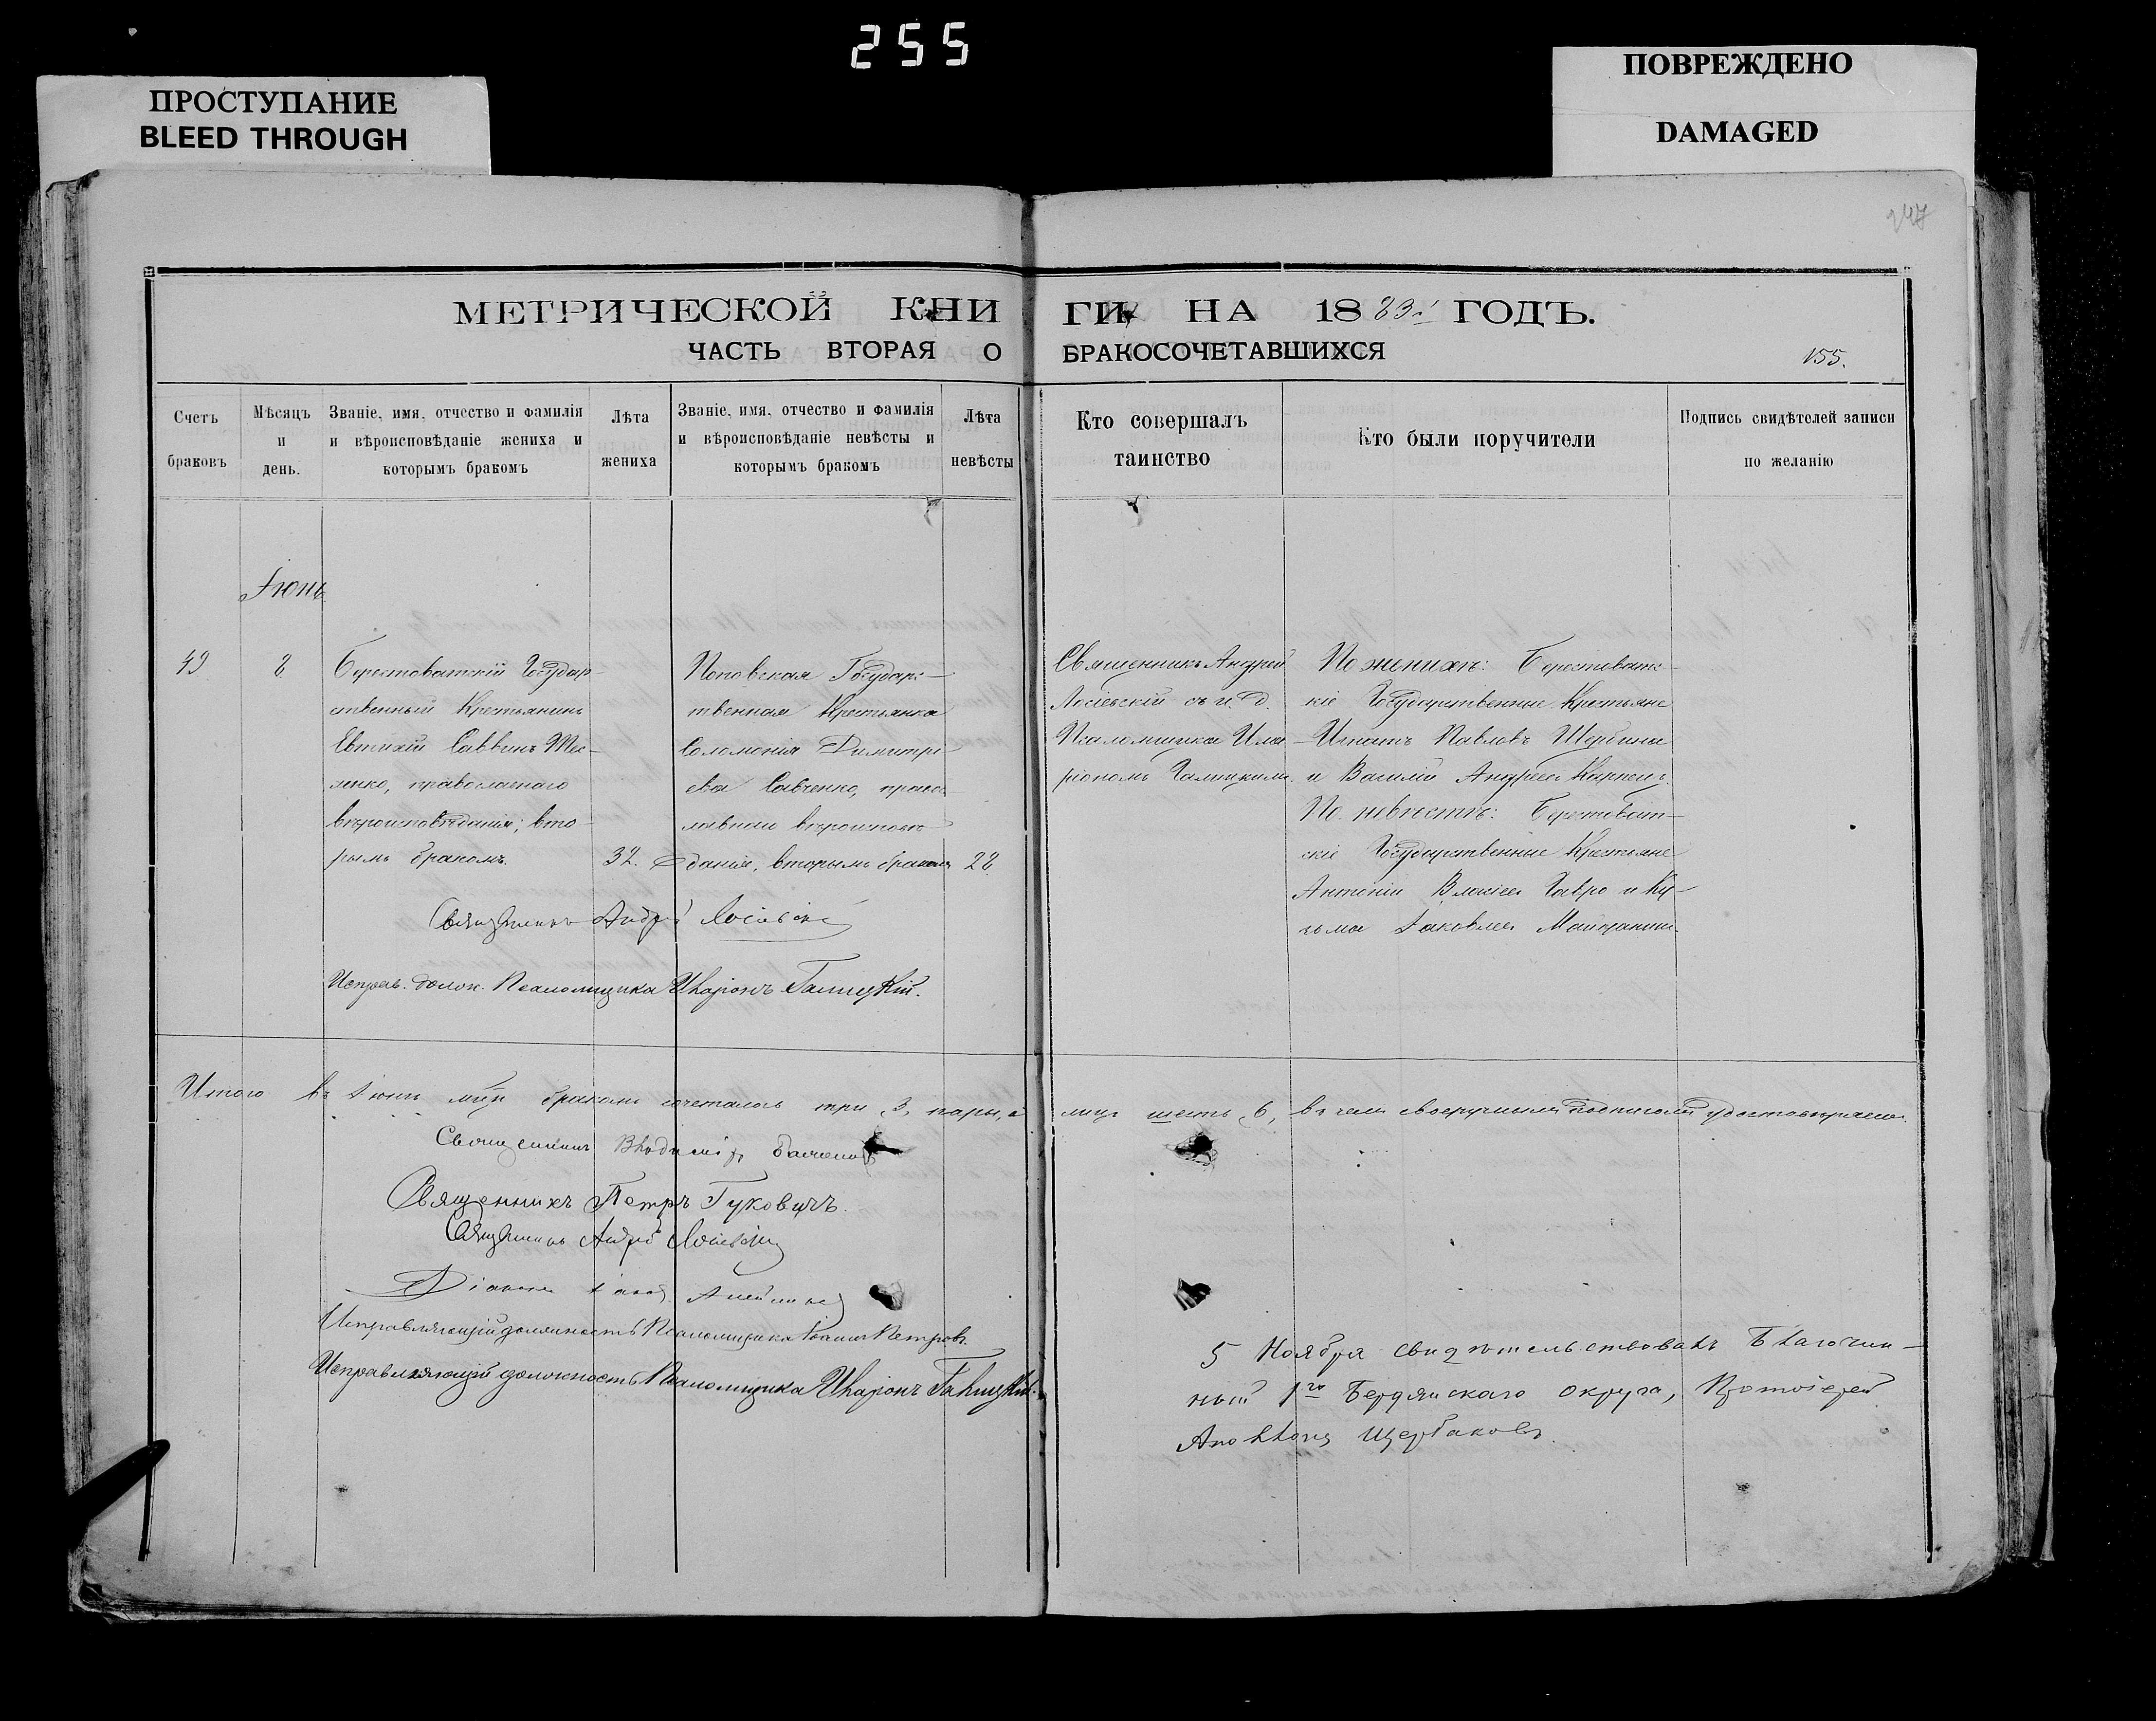 255
ПРОСТУПАНИЕ
BLEED THROUGH
ПОВРЕЖДЕНО
DAMAGED
247
МЕТРИЧЕСКОЙ КНИГИ НА 1883й ГОДЪ.
ЧАСТЬ ВТОРАЯ О БРАКОСОЧЕТАВШИХСЯ
155.
Счетъ
браковъ
Мѣсяцъ
и
день.
Званіе, имя, отчество и фамилія
и вѣроисповѣданіе жениха и
которымъ бракомъ
Лѣта
жениха
Званіе, имя, отчество и фамилія
и вѣроисповѣданіе невѣсты и
которымъ бракомъ
Лѣта
невѣсты
Кто совершалъ
таинство
Кто были поручители
Подпись свидѣтелей записи
по желанію
Іюнь
49
8
Берестоватскій Государ-
ственный Крестьянинъ
Евтихій Саввинъ
православнаго
вѣроисповѣданія; вто-
рымъ бракомъ.
32.
Поповская Государс-
твенная Крестьянка
Соломонія Димитрі-
ева Савченко, правос-
лавнаго вѣроисповѣ-
данія, вторымъ бракомъ
28
Священникъ Андрей
Лосіевскій съ и. д.
Псаломщика Ила-
ріономъ Галицкимъ.
По женихѣ: Берестоватс-
кіе Государственные Крестьяне
Игнатъ Павловъ Щербина
и Василій Андреевъ
По невѣстѣ: Берестоват-
скіе Государственные Крестьяне
Антоній Гавро и Ку-
зьма Іаковлевъ
Священникъ Андрей Лосіевскій
Исправ. долж. Псаломщика Иларіонъ Галицкій.
Итого въ Іюнѣ мцѣ бракомъ сочеталось три, 3, пары, а лицъ шесть, 6, въ чемъ своеручными подписами удостовѣряемъ.
Священникъ Владиміръ
Священникъ Петръ Гуковичъ.
Священникъ Андрей Лосіевскій
Діаконъ Іаковъ
Исправляющій должность Псаломщика Іоаннъ Петровъ
Исправляющій должность Псаломщика Иларіонъ Галицкій.
5 Ноября свидѣтельствовалъ Благочин-
ный 1го Бердянскаго округа, Протоіерей
Аполлонъ Щербаковъ.